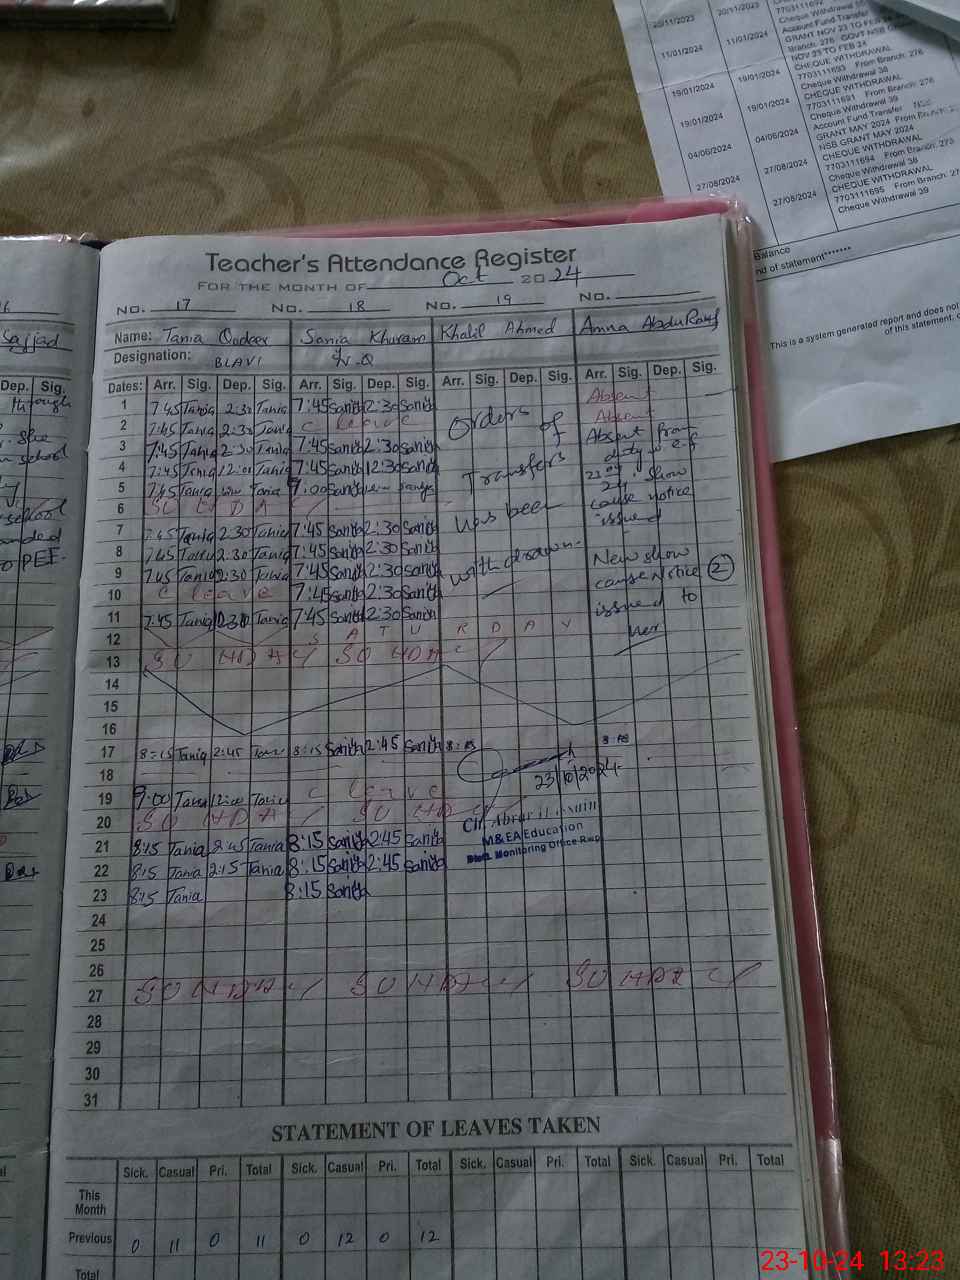 20/11/2023 20/11/2023
Cheque Withdrawal
Account Fund Transfer
GRANT NOV 23 TO FEB 24
11/01/2024 11/01/2024 Branch: 276 GOVT NSB
NOV 23 TO FEB 24
CHEQUE WITHDRAWAL
19/01/2024 19/01/2024 7703111693 From Branch: 276
Cheque Withdrawal 38
CHEQUE WITHDRAWAL
19/01/2024 19/01/2024 7703111691 From Branch: 276
Cheque Withdrawal 39
Account Fund Transfer
04/06/2024 04/06/2024 GRANT MAY 2024 From Branch:
NSB GRANT MAY 2024
CHEQUE WITHDRAWAL
27/08/2024 27/08/2024 7703111694 From Branch: 273
Cheque Withdrawal 38
CHEQUE WITHDRAWAL
27/08/2024 27/08/2024 7703111695 From Branch: 27
Cheque Withdrawal 39
Balance
nd of statement*******
This is a system generated report and does not
of this statement,
Teacher's Attendance Register
FOR THE MONTH OF Oct 2024
NO. 17 NO. 18 NO. 19 NO.
Sajjad
Name: Tania Qadeer Sania Khuram Khalil Ahmed Amna Abdu Rauf
Designation:
Dep. Sig.
Dates: Arr. Sig. Dep. Sig. Arr. Sig. Dep. Sig. Arr. Sig. Dep. Sig. Arr. Sig. Dep. Sig.
1 7:45 Tania 2:30 Tania 7:45 Sania 2:30 Sania Absent
2 7:45 Tania 2:30 Tania C leave Orders of Absent
3 7:45 Tania 2:30 Tania 7:45 Sania 2:30 Sania Absent from
4 7:45 Tania 12:00 Tania 7:45 Sania 12:30 Sania Transfers duty w.e.f
5 7:45 Tania Tania 7:00 Sania Show
6 SUNDAY cause notice
7 7:45 Tania 2:30 Tania 7:45 Sania 2:30 Sania has been issued
8 7:45 Tania 2:30 Tania 7:45 Sania 2:30 Sania
9 7:45 Tania 2:30 Tania 7:45 Sania 2:30 Sania withdrawn. New show
10 C leave 7:45 Sania 2:30 Sania cause Notice 2
11 7:45 Tania 2:30 Tania 7:45 Sania 2:30 Sania issued to
12 SATURDAY her
13 SUNDAY SUNDAY
14
15
16
17 8:15 Tania 2:45 Tania 8:15 Sania 2:45 Sania 8:15
18
23/10/2024
19 9:00 Tania 12:00 Tania C leave
20 SUNDAY SUNDAY
M&EA Education
Distt. Monitoring Office Rwp
21 8:15 Tania 2:45 Tania 8:15 Sania 2:45 Sania
22 8:15 Tania 2:15 Tania 8:15 Sania 2:45 Sania
23 8:15 Tania 8:15 Sania
24
25
26
27 SUNDAY SUNDAY SUNDAY
28
29
30
31
STATEMENT OF LEAVES TAKEN
Sick. Casual Pri. Total Sick. Casual Pri. Total Sick. Casual Pri. Total Sick. Casual Pri. Total
This
Month
Previous 0 11 0 11 0 12 0 12
Total
23-10-24 13:23